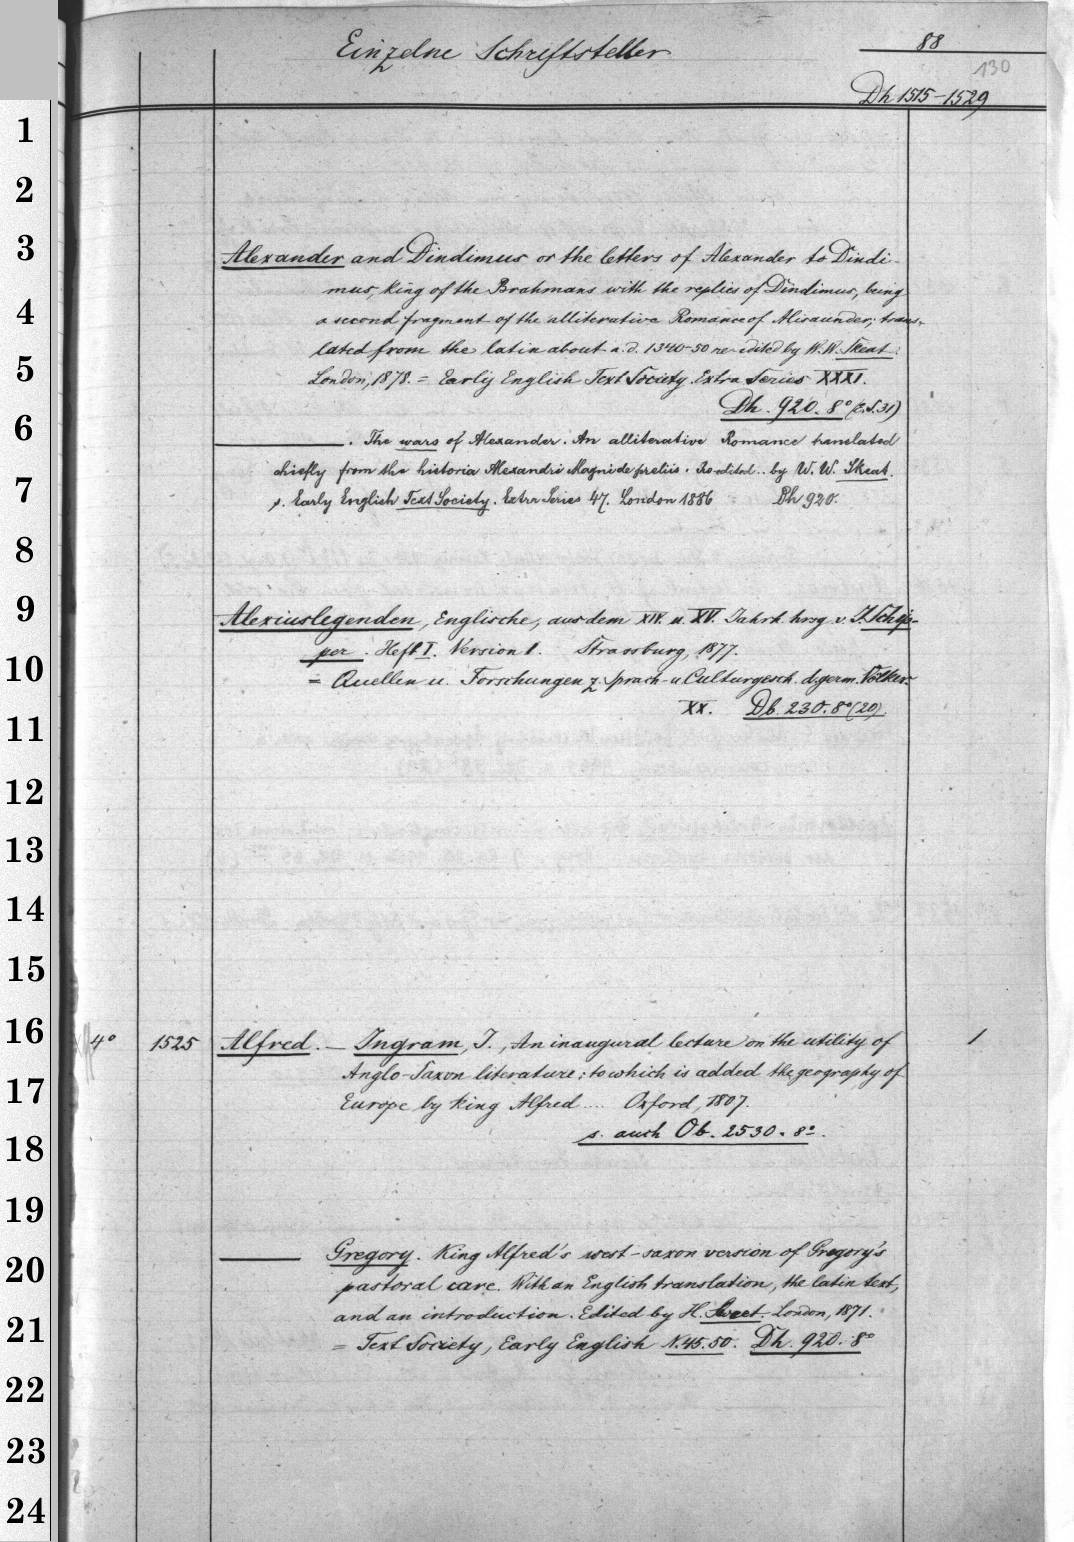 Einzelne Schriftsteller
88
130
Dh 1515-1529
1
2
3
4
5
6
7
8
9
10
11
12
13
14
15
16
17
18
19
20
21
22
23
24
Alexander and Dindimus or the letters of Alexander to Dindi-
mus, king of the Brahmans with the replies of Dindimus, being
a second fragment of the alliterative Romance of Alisaunder; trans-
lated from the latin about a.d. 1340-50 re-edited by W. W. Skeat.
London, 1878. = Early English Text Society. Extra Series XXXI.
Dh. 920. 8° (E.S. 31)
———. The wars of Alexander. An alliterative Romance translated
chiefly from the historia Alexandri Magni de preliis. Re-edited .. by W. W. Skeat.
s. Early English Text Society. Extra Series 47. London 1886 Dh 920.
Alexiuslegenden, Englische, aus dem XIV. u. XV. Jahrh. hrsg. v. J. Schip-
per. Heft I. Version 1. Strassburg, 1877.
= Quellen u. Forschungen z. Sprach- u Culturgesch. d. germ. Völker
XX. Db. 230. 8° (20)
4° 1525 Alfred. — Ingram, J., An inaugural lecture on the utility of 1
Anglo-Saxon literature; to which is added the geography of
Europe by king Alfred .... Oxford, 1807.
s. auch Ob. 2530. 8°.
——— Gregory. King Alfred's west-saxon version of Gregory's
pastoral care. With an English translation, the latin text,
and an introduction. Edited by H. Sweet. London, 1871.
= Text Society, Early English N. 45. 50. Dh. 920. 8°